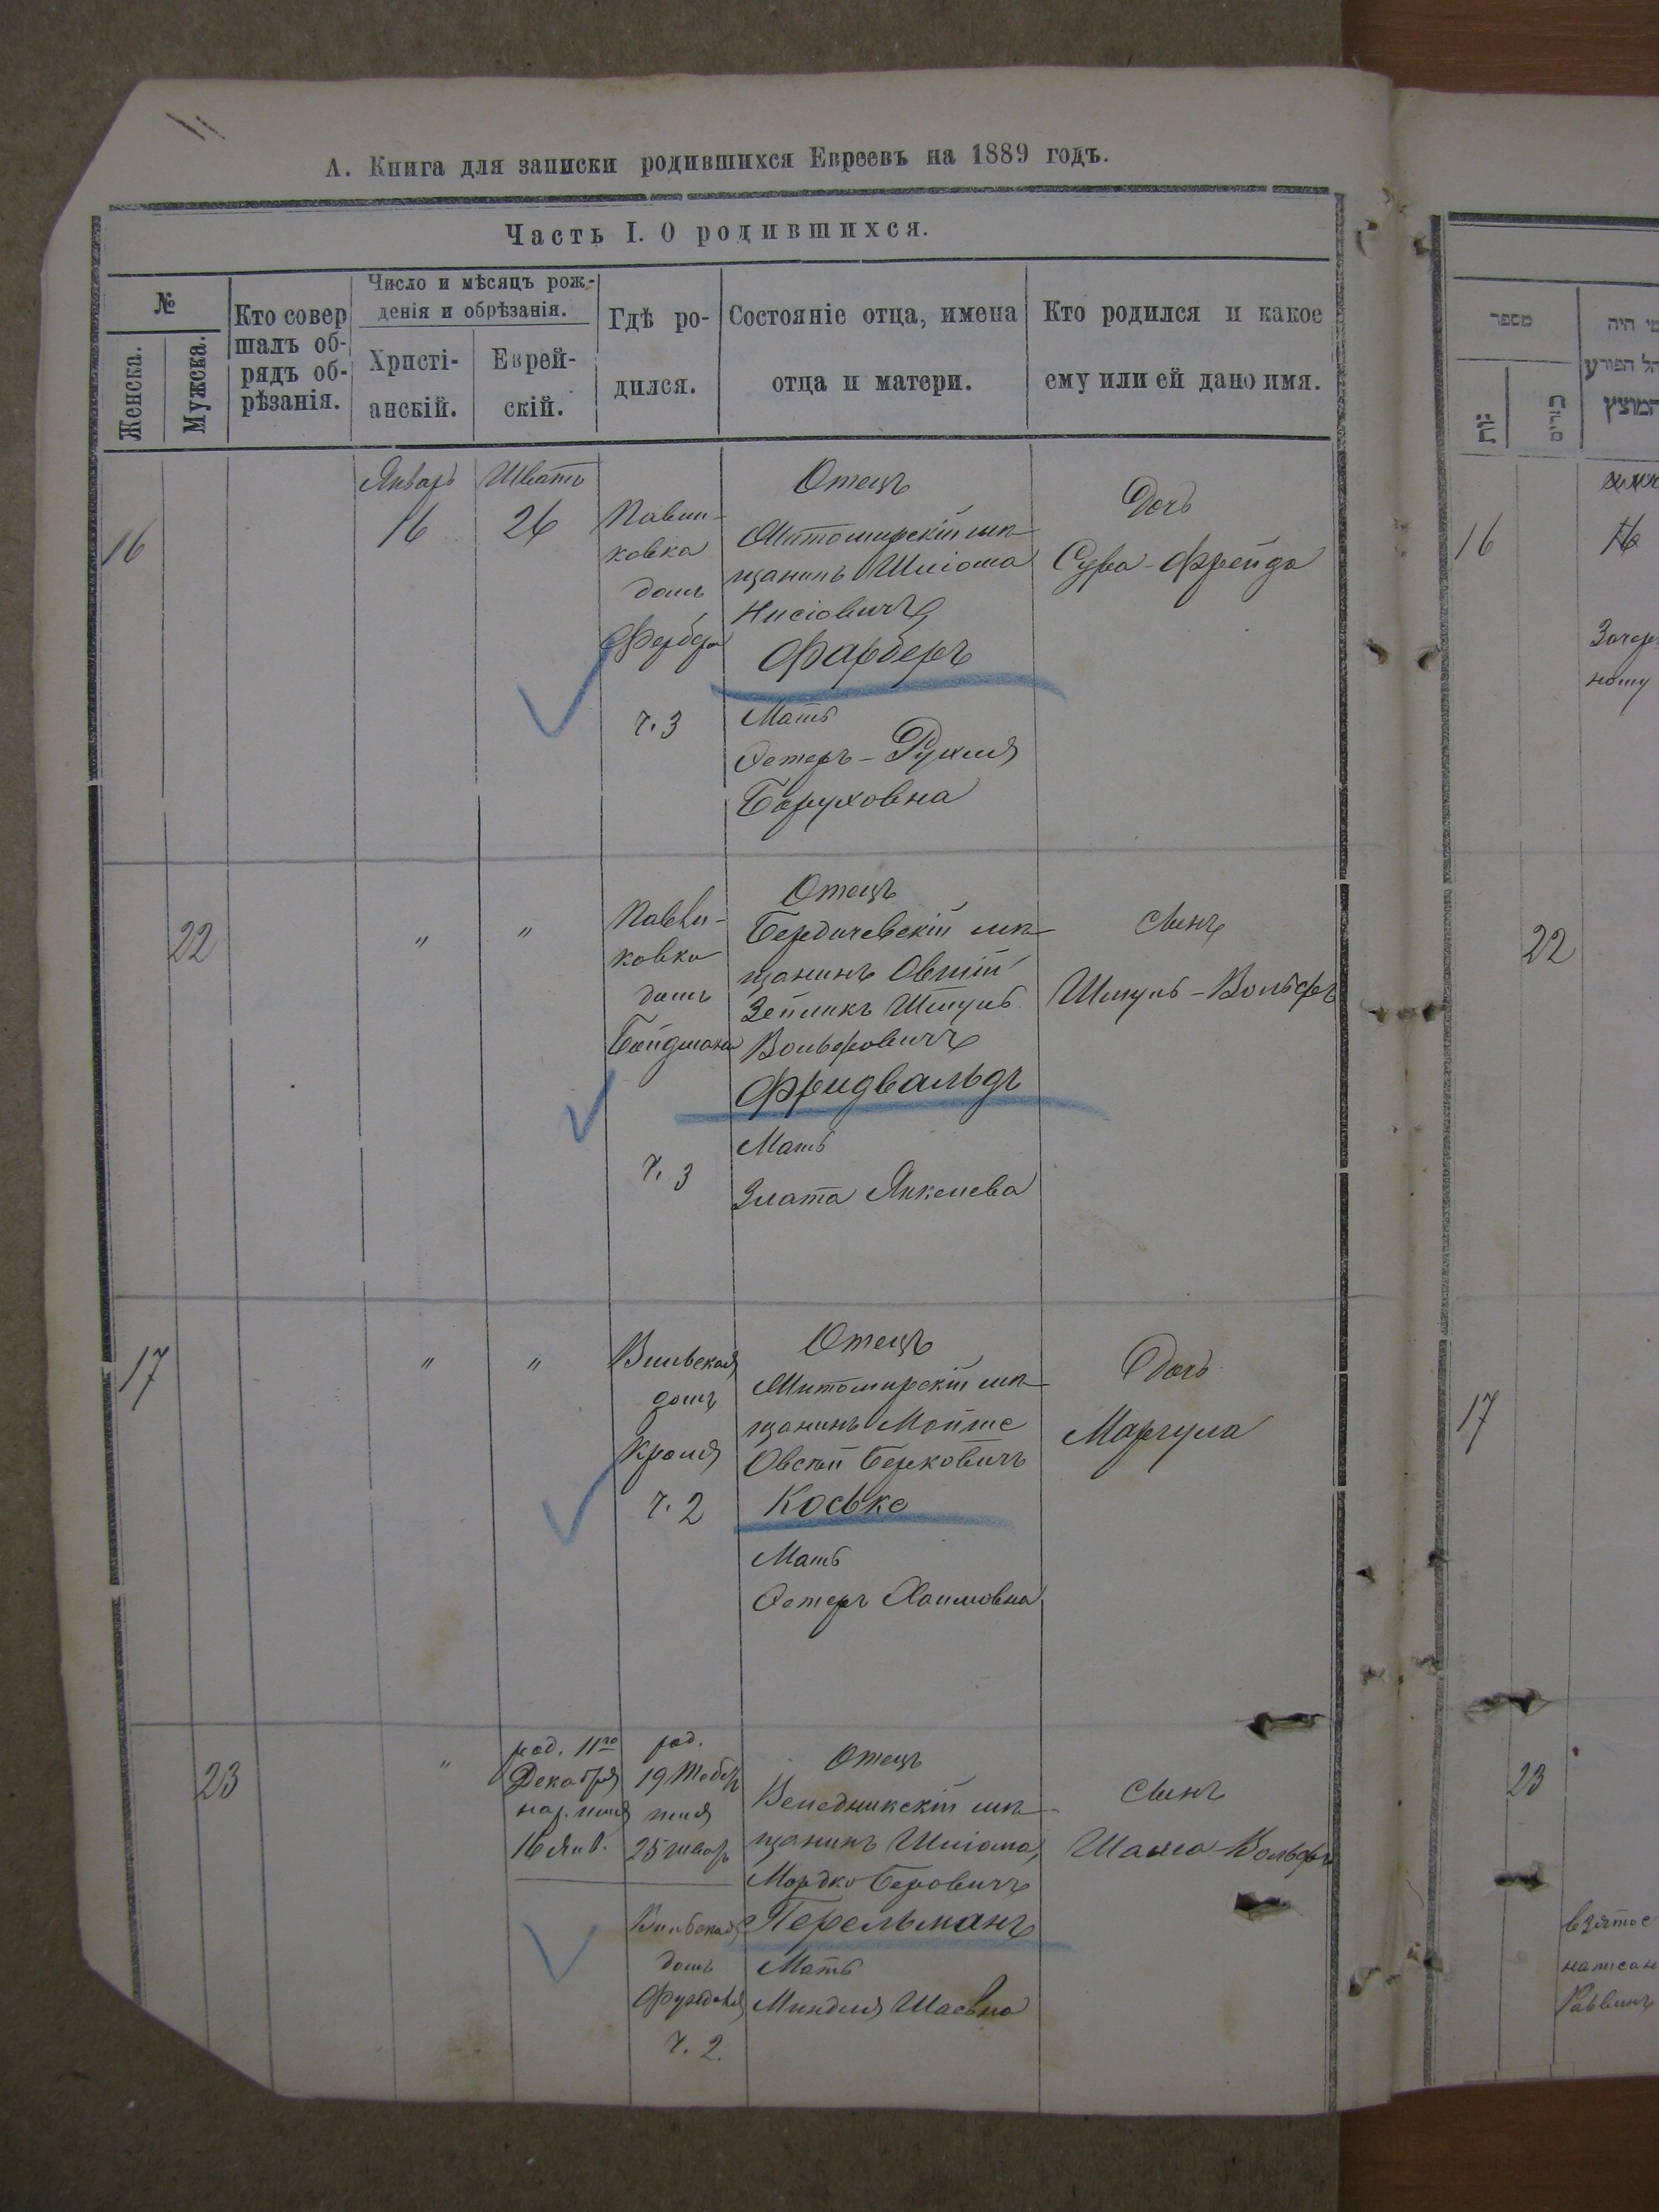 11
А. Книга для записки родившихся Евреевъ на 1889 годъ.
Часть I. О родившихся.
№
Женска.
Мужска.
Кто совер
шалъ об-
рядъ об-
рѣзанія.
Число и мѣсяцъ рож-
денія и обрѣзанія.
Христі-
анскій.
Еврей-
скій.
Гдѣ ро-
дился.
Состояніе отца, имена
отца и матери.
Кто родился и какое
ему или ей дано имя.
16
Январь
16
Шватъ
26
Павли-
ковка
домъ
Фарбера
ч. 3
Отецъ
Житомирскій мѣ-
щанинъ Шліома
Нисіовичъ
Фарберъ
Мать
Эстеръ-Рухля
Боруховна
Дочь
Сура-Фрейда
22
"
"
Павли-
ковка
домъ
ч. 3
Отецъ
Бердичевскій мѣ-
щанинъ Овшій
Зейликъ Шмуль
Вольфовичъ
Фридвальдъ
Мать
Злата Янкелева
Сынъ
Шмуль-Вольфъ
17
"
"
Вильская
домъ
Кроля
ч. 2
Отецъ
Житомирскій мѣ-
щанинъ Мойше
Овсій Берковичъ
Косько
Мать
Эстеръ Хаимовна
Дочь
Маргула
23
"
род. 11го
Декабря
16 Янв.
род.
19 Тебетъ
25 шват
Вильская
домъ
ч. 2.
Отецъ
мѣ-
щанинъ Шліома
Мордко Беровичъ
Перельманъ
Мать
Миндля Шаевна
Сынъ
Шая Вольфъ
מספר
16
16
22
17
23
взятое
написан
Раввинъ